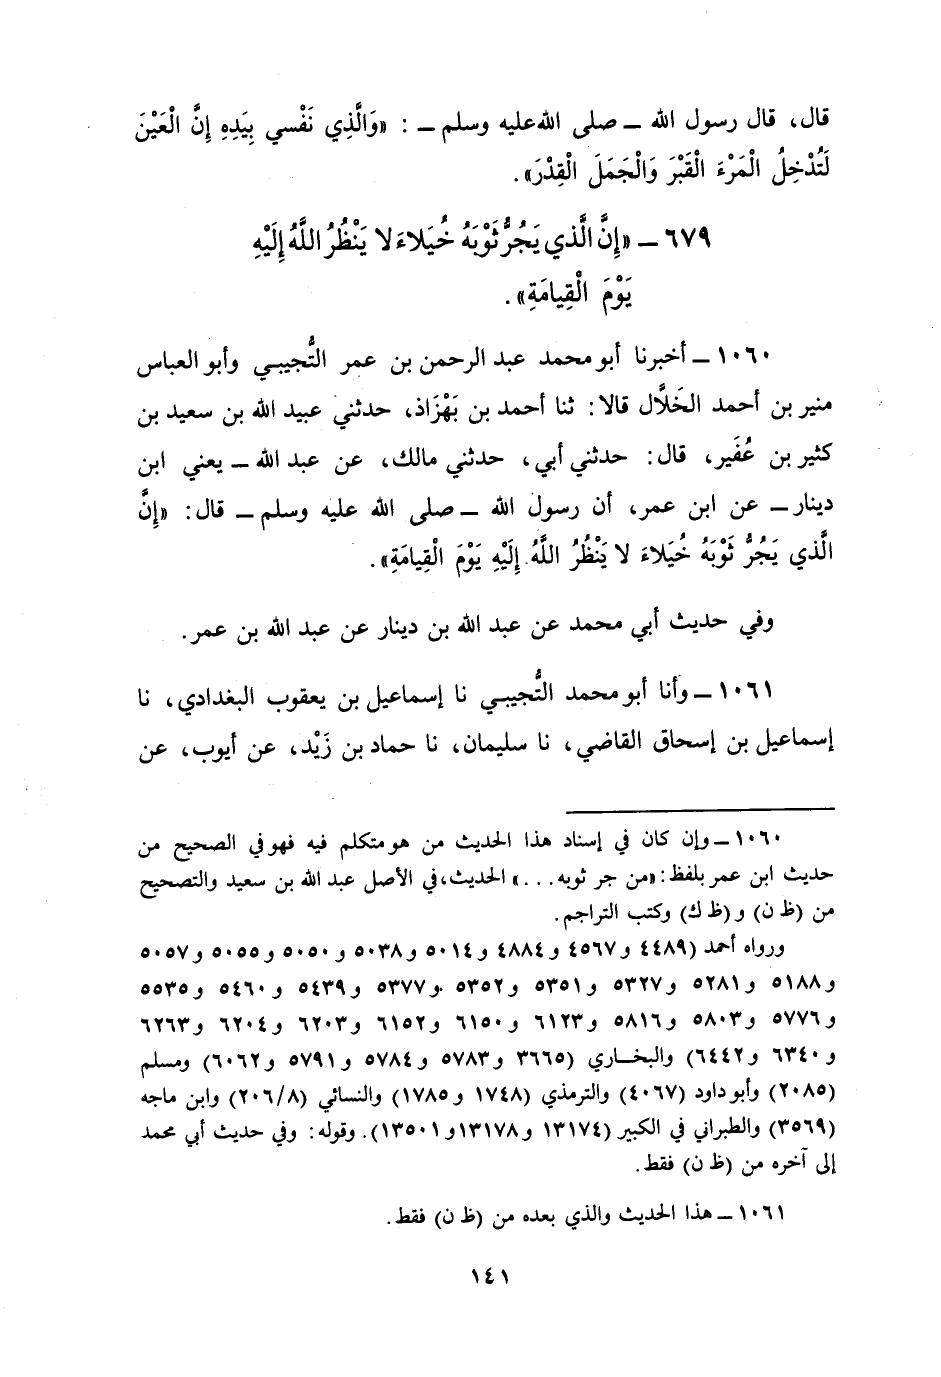 قال، قال رسول الله ــ صلى الله عليه وسلم ــ : «وَالَّذِي نَفْسي بِيَدِهِ إِنَّ الْعَيْنَ
لَتُدْخِلُ الْمَرْءَ الْقَبْرَ وَالْجَمَلَ الْقِدْرَ».
٦٧٩ ــ «إِنَّ الَّذي يَجُرُّ ثَوْبَهُ خُيَلاءَ لا يَنْظُرُ اللَّهُ إِلَيْهِ
يَوْمَ الْقِيامَةِ».
١٠٦٠ ــ أخبرنا أبو محمد عبد الرحمن بن عمر التُّجيبـي وأبو العباس
منير بن أحمد الخَلَّال قالا: ثنا أحمد بن بَهْزَاذ، حدثني عبيد الله بن سعيد بن
كثير بن عُفَير، قال: حدثني أبي، حدثني مالك، عن عبد الله ــ يعني ابن
دينار ــ عن ابن عمر، أن رسول الله ــ صلى الله عليه وسلم ــ قال: «إِنَّ
الَّذي يَجُرُّ ثَوْبَهُ خُيَلاءَ لا يَنْظُرُ اللَّهُ إِلَيْهِ يَوْمَ الْقِيامَةِ».
وفي حديث أبي محمد عن عبد الله بن دينار عن عبد الله بن عمر.
١٠٦١ ــ وأنا أبو محمد التُّجيبـي نا إسماعيل بن يعقوب البغدادي، نا
إسماعيل بن إسحاق القاضي، نا سليمان، نا حماد بن زَيْد، عن أيوب، عن
١٠٦٠ ــ وإن كان في إسناد هذا الحديث من هو متكلم فيه فهو في الصحيح من
حديث ابن عمر بلفظ: «من جر ثوبه...» الحديث، في الأصل عبد الله بن سعيد والتصحيح
من (ظ ن) و (ظ ك) وكتب التراجم.
ورواه أحمد (٤٤٨٩ و ٤٥٦٧ و ٤٨٨٤ و ٥٠١٤ و ٥٠٣٨ و ٥٠٥٠ و ٥٠٥٥ و ٥٠٥٧
و ٥١٨٨ و ٥٢٨١ و ٥٣٢٧ و ٥٣٥١ و ٥٣٥٢ و ٥٣٧٧ و ٥٤٣٩ و ٥٤٦٠ و ٥٥٣٥
و ٥٧٧٦ و ٥٨٠٣ و ٥٨١٦ و ٦١٢٣ و ٦١٥٠ و ٦١٥٢ و ٦٢٠٣ و ٦٢٠٤ و ٦٢٦٣
و ٦٣٤٠ و ٦٤٤٢) والبخـاري (٣٦٦٥ و ٥٧٨٣ و ٥٧٨٤ و ٥٧٩١ و ٦٠٦٢) ومسلم
(٢٠٨٥) وأبو داود (٤٠٦٧) والترمذي (١٧٤٨ و ١٧٨٥) والنسائي (٢٠٦/٨) وابن ماجه
(٣٥٦٩) والطبراني في الكبير (١٣١٧٤ و ١٣١٧٨ و ١٣٥٠١). وقوله: وفي حديث أبي محمد
إلى آخره من (ظ ن) فقط.
١٠٦١ ــ هذا الحديث والذي بعده من (ظ ن) فقط.
١٤١